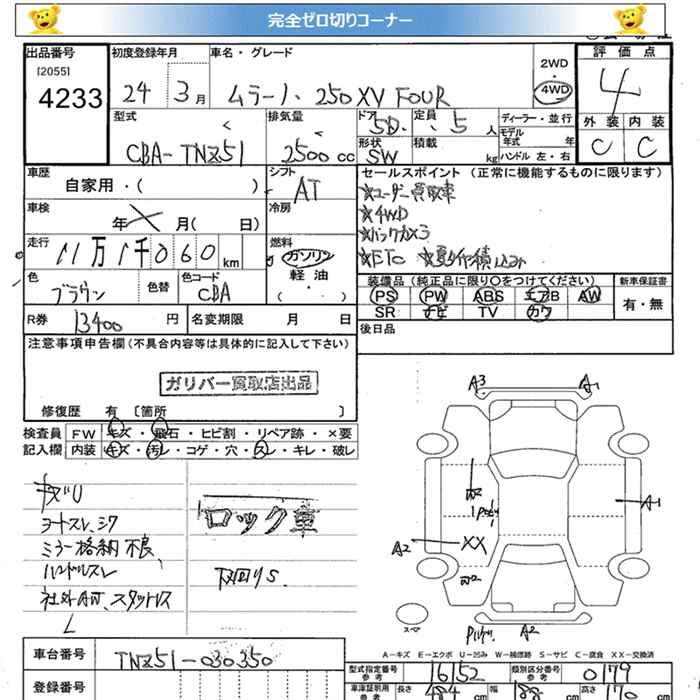 完全ゼロ切りコーナー
出品番号 初度登録年月 車名・グレード 評価点
[2055]
4233
24 3月 ムラーノ 250XV FOUR
2WD・4WD
4
外装 内装
C C
型式 排気量 ドア 定員 ディーラー・並行
CBA-TNZ51 2500cc 5D. 5人
モデル年式 年
形状 積載 ハンドル 左・右
SW kg
車歴 シフト セールスポイント (正常に機能するものに限ります)
自家用・( ) AT
☆ユーザー買取車
☆4WD
☆バックカメラ
☆ETC
車検 冷房
年 月( 日)
走行 燃料
11万1千060km
ガソリン
軽油
・( )・
装備品(純正品に限り○をつけてください) 新車保証書
PS PW ABS エアB AW 有・無
SR ナビ TV カワ
色 色替 色コード
ブラウン CBA
後日品
R券 13400円 名変期限 月 日
注意事項申告欄(不具合内容等は具体的に記入して下さい)
ガリバー買取店出品
修復歴 有〔箇所 〕
検査員 FW キズ・飛石・ヒビ割・リペア跡・×要
記入欄 内装 キズ・汚レ・コゲ・穴・スレ・キレ・破レ
A3 A1
ロック車
ミラー格納不良、
ハンドルスレ
下回りS.
社外AW、スタッドレス
A1
A2 XX
A2
スペア
A-キズ E-エクボ U-凹み W-補修跡 S-サビ C-腐食 XX-交換済
車台番号 TNZ51-030350
型式指定番号 参考 16152 類別区分番号 参考 0179
登録番号
車庫証明用 参考 長さ 484 cm 幅 188 cm 高さ cm